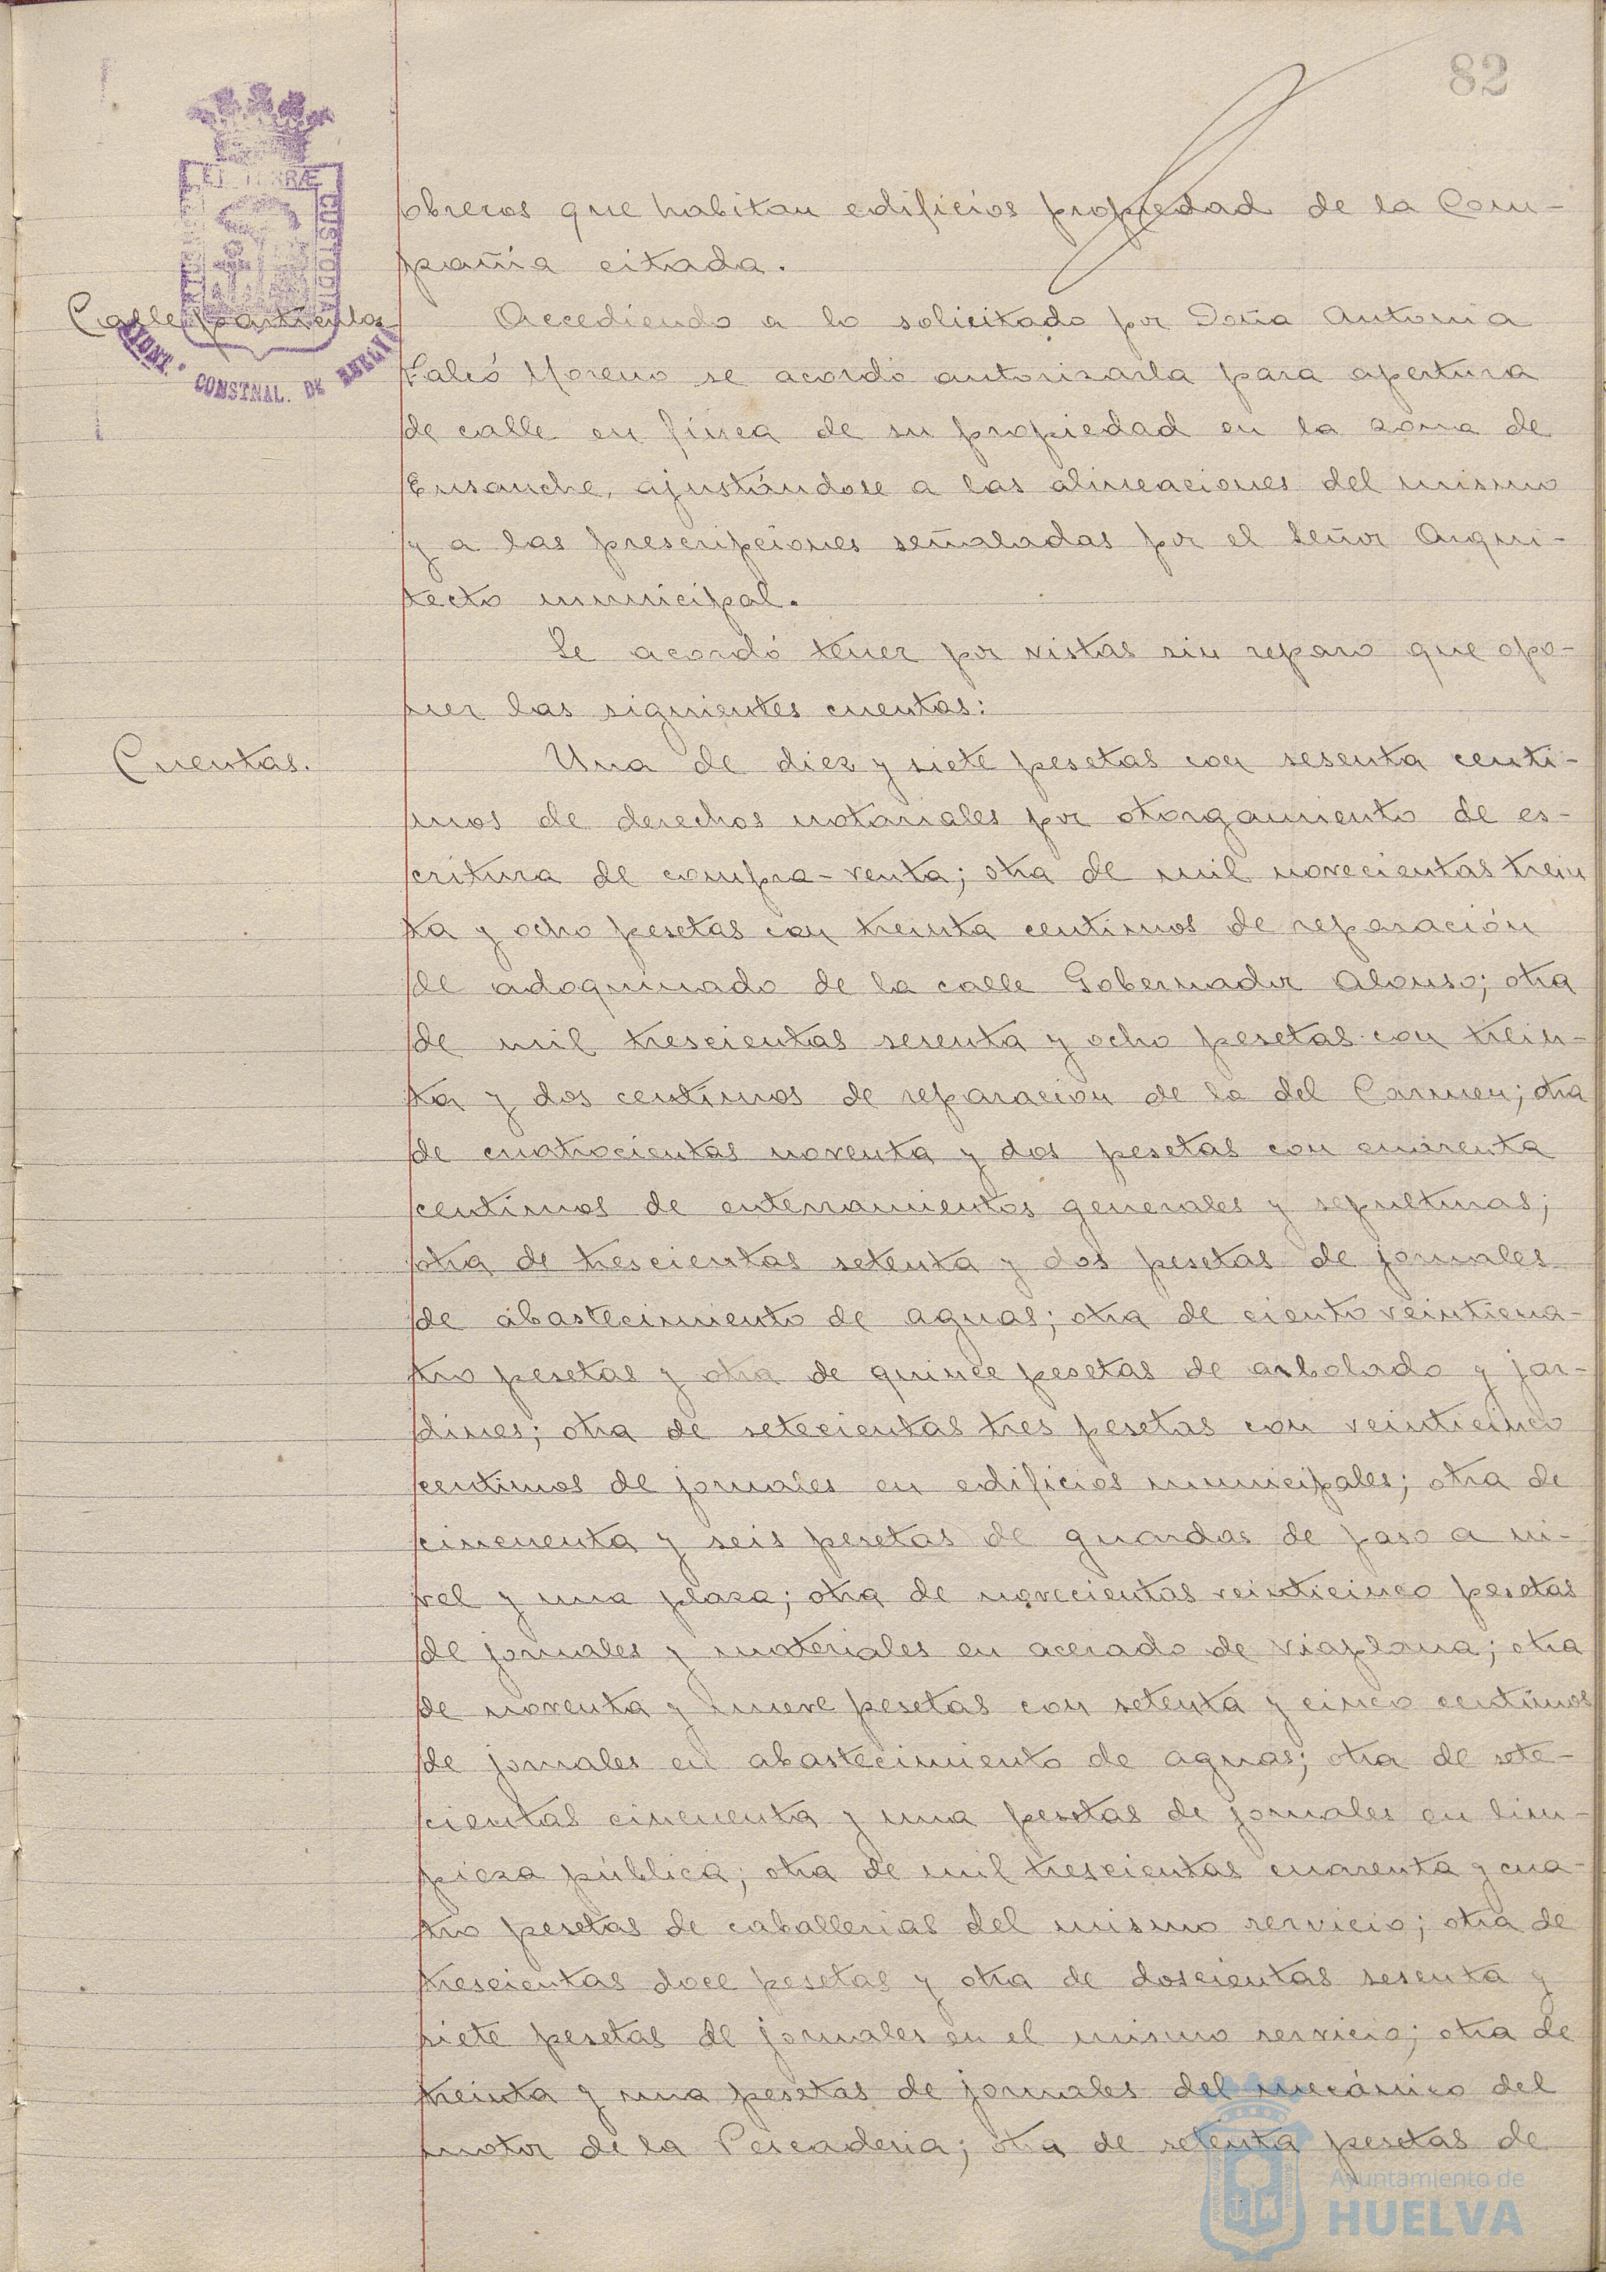 82
obreros que habitan edificios propiedad de la Com-
pañia citada.
Calle particular
Accediendo a lo solicitado por Doña Antonia
Falcó Moreno se acordó autorizarla para apertura
de calle en finca de su propiedad en la zona de
Ensanche, ajustándose a las alineaciones del mismo
y a las prescripciones señaladas por el Señor Arqui-
tecto municipal.
Se acordó tener por vistas sin reparo que opo-
ner las siguientes cuentas:
Cuentas.
Una de diez y siete pesetas con sesenta centi-
mos de derechos notariales por otorgamiento de es-
critura de compra-venta; otra de mil novecientas trein
ta y ocho pesetas con treinta centimos de reparación
de adoquinado de la calle Gobernador Alonso; otra
de mil trescientas sesenta y ocho pesetas con trein-
ta y dos centimos de reparación de la del Carmen; otra
de cuatrocientas noventa y dos pesetas con cuarenta
centimos de enterramientos generales y sepulturas;
otra de trescientas setenta y dos pesetas de jornales
de abastecimiento de aguas; otra de ciento veinticua-
tro pesetas y otra de quince pesetas de arbolado y jar-
dines; otra de setecientas tres pesetas con veinticinco
centimos de jornales en edificios municipales; otra de
cincuenta y seis pesetas de guardas de paso a ni-
vel y una plaza; otra de novecientas veinticinco pesetas
de jornales y materiales en acerado de Viaplana; otra
de noventa y nueve pesetas con setenta y cinco centimos
de jornales en abastecimiento de aguas; otra de sete-
cientas cincuenta y una pesetas de jornales en lim-
pieza pública; otra de mil trescientas cuarenta y cua-
tro pesetas de caballerias del mismo servicio; otra de
trescientas doce pesetas y otra de doscientas sesenta y
siete pesetas de jornales en el mismo servicio; otra de
treinta y una pesetas de jornales del mecánico del
motor de la Pescaderia; otra de setenta pesetas de
CUSTODIA
CONSTNAL. DE
Ayuntamiento de
HUELVA